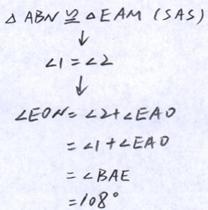 △ABN≌△EAM (SAS)
↓
∠1=∠2
↓
∠EON=∠2+∠EAO
=∠1+∠EAO
=∠BAE
=108°